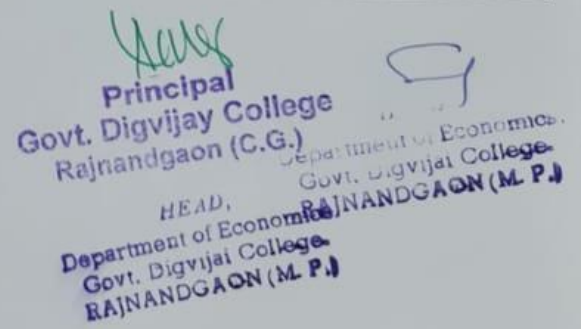 Principal
Govt. Digvijay College
Rajnandgaon (C.G.)
Department of Economics.
Govt. Digvijai College
RAJNANDGAON (M. P.)
HEAD,
Department of Economics
Govt. Digvijai College
RAJNANDGAON (M. P.)